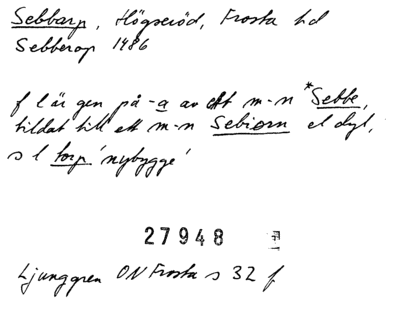 Sebbarp, Högseröd, Frosta hd
Sebberop 1486
f l är gen på -a av ett m-n *Sebbe,
bildat till ett m-n Sebiorn el dyl,
s l torp 'nybygge'
27948
Ljunggren ON Frosta s 32 f